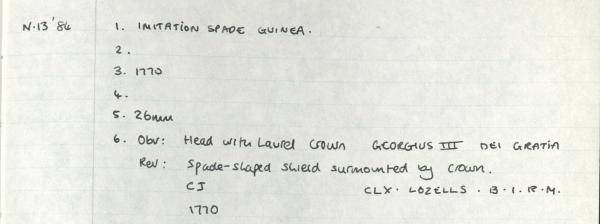 N.13 '84 1. IMITATION SPADE GUINEA.
2.
3. 1770
4.
5. 26mm
6. Obv: Head with Laurel Crown GEORGIUS III DEI GRATIA
Rev: Spade-shaped shield surmounted by crown.
CJ CLX. LOZELLS. B.I.R.M.
1770